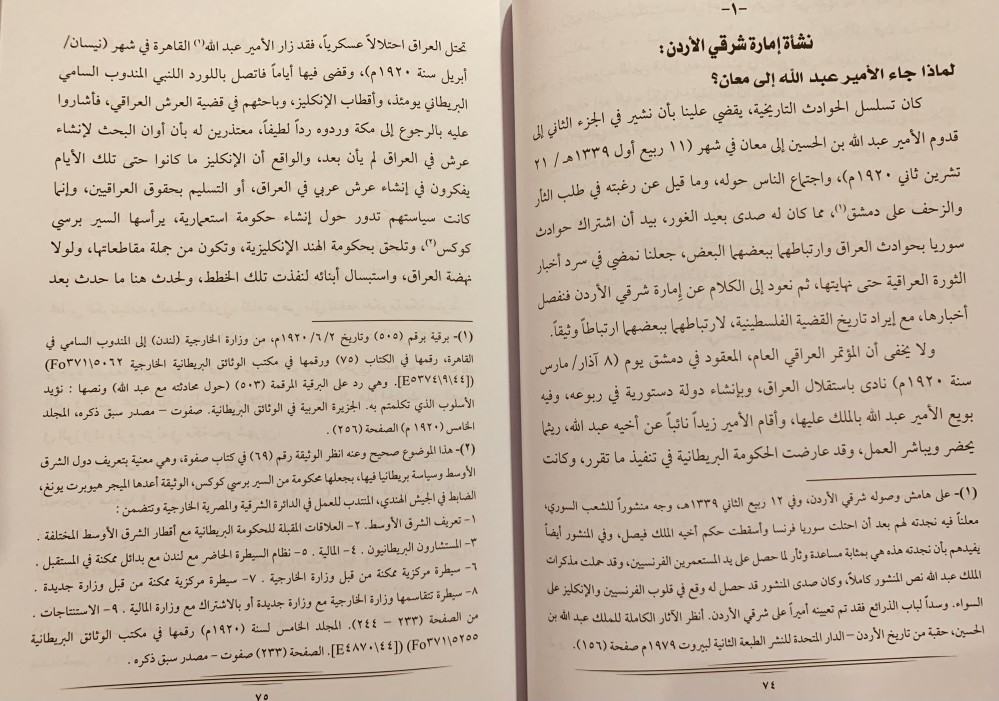 -١-
نشأة إمارة شرقي الأردن:
لماذا جاء الأمير عبد الله إلى معان؟
كان تسلسل الحوادث التاريخية، يقضي علينا بأن نشير في الجزء الثاني إلى
قدوم الأمير عبد الله بن الحسين إلى معان في شهر (١١ ربيع أول ١٣٣٩هـ/ ٢١
تشرين ثاني ١٩٢٠م)، واجتماع الناس حوله، وما قيل عن رغبته في طلب الثأر
والزحف على دمشق(١)، مما كان له صدى بعيد الغور، بيد أن اشتراك حوادث
سوريا بحوادث العراق وارتباطهما ببعضهما البعض، جعلنا نمضي في سرد أخبار
الثورة العراقية حتى نهايتها، ثم نعود إلى الكلام عن إمارة شرقي الأردن فنفصل
أخبارها، مع إيراد تاريخ القضية الفلسطينية، لارتباطهما ببعضهما ارتباطاً وثيقاً.
ولا يخفى أن المؤتمر العراقي العام، المعقود في دمشق يوم (٨ آذار/ مارس
سنة ١٩٢٠م) نادى باستقلال العراق، وبإنشاء دولة دستورية في ربوعه، وفيه
بويع الأمير عبد الله بالملك عليها، وأقام الأمير زيداً نائباً عن أخيه عبد الله، ريثما
يحضر ويباشر العمل، وقد عارضت الحكومة البريطانية في تنفيذ ما تقرر، وكانت
(١)- على هامش وصوله شرقي الأردن، وفي ١٢ ربيع الثاني ١٣٣٩هـ، وجه منشوراً للشعب السوري،
معلناً فيه نجدته لهم بعد أن احتلت سوريا فرنسا وأسقطت حكم أخيه الملك فيصل، وفي المنشور أيضاً
يفيدهم بأن نجدته هذه هي بمثابة مساعدة وثأر لما حصل على يد المستعمرين الفرنسيين، وقد حملت مذكرات
الملك عبد الله نص المنشور كاملاً، وكان صدى المنشور قد حصل له وقع في قلوب الفرنسيين والإنكليز على
السواء. وسداً لباب الذرائع فقد تم تعيينه أميراً على شرقي الأردن. أنظر الآثار الكاملة للملك عبد الله بن
الحسين، حقبة من تاريخ الأردن – الدار المتحدة للنشر الطبعة الثانية لبيروت ١٩٧٩م صفحة (١٥٦).
٧٤
تحتل العراق احتلالاً عسكرياً، فقد زار الأمير عبد الله(١) القاهرة في شهر (نيسان/
أبريل سنة ١٩٢٠م)، وقضى فيها أياماً فاتصل باللورد اللنبي المندوب السامي
البريطاني يومئذ، وأقطاب الإنكليز، وباحثهم في قضية العرش العراقي، فأشاروا
عليه بالرجوع إلى مكة وردوه رداً لطيفاً، معتذرين له بأن أوان البحث لإنشاء
عرش في العراق لم يأن بعد، والواقع أن الإنكليز ما كانوا حتى تلك الأيام
يفكرون في إنشاء عرش عربي في العراق، أو التسليم بحقوق العراقيين، وإنما
كانت سياستهم تدور حول إنشاء حكومة استعمارية، يرأسها السير برسي
كوكس(٢)، وتلحق بحكومة الهند الإنكليزية، وتكون من جملة مقاطعاتها، ولولا
نهضة العراق، واستبسال أبنائه لنفذت تلك الخطط، ولحدث هنا ما حدث بعد
(١)- برقية برقم (٥٠٥) وتاريخ ١٩٢٠/٦/٢م، من وزارة الخارجية (لندن) إلى المندوب السامي في
القاهرة، رقمها في الكتاب (٧٥) ورقمها في مكتب الوثائق البريطانية الخارجية (Fo٣٧١\٥٠٦٢
([E٥٣٧٤\٩\٤٤]. وهي رد على البرقية المرقمة (٥٠٣) (حول محادثته مع عبد الله) ونصها : نؤيد
الأسلوب الذي تكلمتم به. الجزيرة العربية في الوثائق البريطانية. صفوت – مصدر سبق ذكره، المجلد
الخامس (١٩٢٠ م) الصفحة (٢٥٦) .
(٢)- هذا الموضوع صحيح وعنه انظر الوثيقة رقم (٦٩) في كتاب صفوة، وهي معنية بتعريف دول الشرق
الأوسط وسياسة بريطانيا فيها، بجعلها محكومة من السير برسي كوكس، الوثيقة أعدها الميجر هيوبرت يونغ،
الضابط في الجيش الهندي، المنتدب للعمل في الدائرة الشرقية والمصرية الخارجية وتتضمن :
١- تعريف الشرق الأوسط. ٢- العلاقات المقبلة للحكومة البريطانية مع أقطار الشرق الأوسط المختلفة .
٣- المستشارون البريطانيون . ٤- المالية . ٥- نظام السيطرة الحاضر مع لندن مع بدائل ممكنة في المستقبل .
٦- سيطرة مركزية ممكنة من قبل وزارة الخارجية . ٧- سيطرة مركزية ممكنة من قبل وزارة جديدة .
٨- سيطرة تتقاسمها وزارة الخارجية مع وزارة جديدة أو بالاشتراك مع وزارة المالية . ٩- الاستنتاجات .
من الصفحة (٢٣٣ – ٢٤٤). المجلد الخامس لسنة (١٩٢٠م) رقمها في مكتب الوثائق البريطانية
(Fo٣٧١\٥٢٥٥) ([E٤٨٧٠\٤٤]. الصفحة (٢٣٣) صفوت – مصدر سبق ذكره .
٧٥